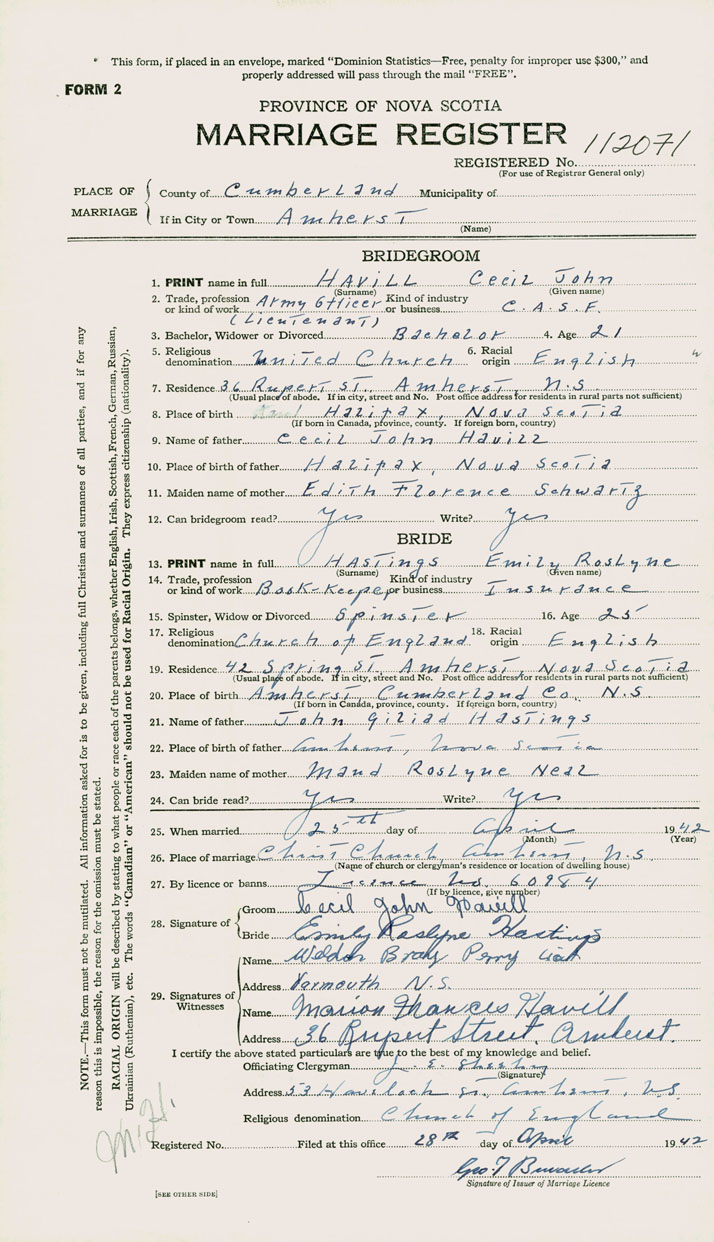 * This form, if placed in an envelope, marked "Dominion Statistics—Free, penalty for improper use $300," and
properly addressed will pass through the mail "FREE".
FORM 2
PROVINCE OF NOVA SCOTIA
MARRIAGE REGISTER
REGISTERED No. 112071
(For use of Registrar General only)
PLACE OF MARRIAGE
County of Cumberland Municipality of
If in City or Town Amherst
(Name)
BRIDEGROOM
1. PRINT name in full HAVILL Cecil John
(Surname) (Given name)
2. Trade, profession or kind of work Army Officer Kind of industry or business C.A.S.F.
(Lieutenant)
3. Bachelor, Widower or Divorced Bachelor 4. Age 21
5. Religious denomination United Church 6. Racial origin English
7. Residence 36 Rupert St. Amherst, N.S
(Usual place of abode. If in city, street and No. Post office address for residents in rural parts not sufficient)
8. Place of birth Halifax, Nova Scotia
(If born in Canada, province, county. If foreign born, country)
9. Name of father Cecil John Havill
10. Place of birth of father Halifax, Nova Scotia
11. Maiden name of mother Edith Florence Schwartz
12. Can bridegroom read? Yes Write? Yes
BRIDE
13. PRINT name in full HASTINGS Emily Roslyne
(Surname) (Given name)
14. Trade, profession or kind of work Book-keeper Kind of industry or business Insurance
15. Spinster, Widow or Divorced Spinster 16. Age 25
17. Religious denomination Church of England 18. Racial origin English
19. Residence 42 Spring St. Amherst, Nova Scotia
(Usual place of abode. If in city, street and No. Post office address for residents in rural parts not sufficient)
20. Place of birth Amherst Cumberland Co. N.S.
(If born in Canada, province, county. If foreign born, country)
21. Name of father John Giliad Hastings
22. Place of birth of father Amherst, Nova Scotia
23. Maiden name of mother Maud Roslyne Neal
24. Can bride read? Yes Write? Yes
25. When married 25th day of April 1942
(Month) (Year)
26. Place of marriage Christ Church, Amherst, N.S
(Name of church or clergyman's residence or location of dwelling house)
27. By licence or banns Licence No. 60984
(If by licence, give number)
28. Signature of
Groom Cecil John Havill
Bride Emily Roslyne Hastings
29. Signatures of Witnesses
Name Weldon Bray Perry
Address Yarmouth N.S.
Name Marion Frances Havill
Address 36 Rupert Street, Amherst.
I certify the above stated particulars are true to the best of my knowledge and belief.
Officiating Clergyman
(Signature)
Address 53 Havelock St. Amherst, N.S.
Religious denomination Church of England
Registered No. Filed at this office 28th day of April 1942
Geo. T
Signature of Issuer of Marriage Licence
[SEE OTHER SIDE]
NOTE.—This form must not be mutilated. All information asked for is to be given, including full Christian and surnames of all parties, and if for any
reason this is impossible, the reason for the omission must be stated.
RACIAL ORIGIN will be described by stating to what people or race each of the parents belongs, whether English, Irish, Scottish, French, German, Russian,
Ukrainian (Ruthenian), etc. The words "Canadian" or "American" should not be used for Racial Origin. They express citizenship (nationality).